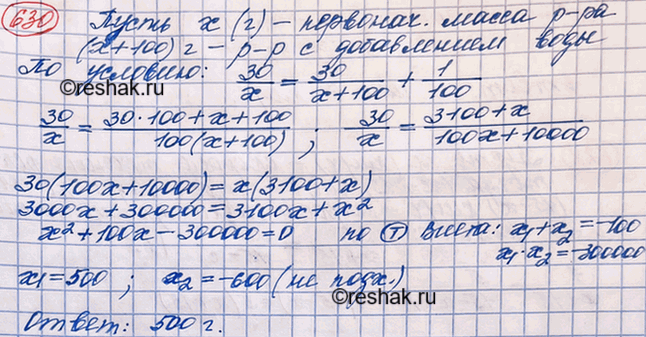 630 Пусть x (г) – первонач. масса р-ра
(x+100) г – р-р с добавлением воды
По условию: 30/x = 30/(x+100) + 1/100
30/x = (30·100+x+100)/(100(x+100)) ; 30/x = (3100+x)/(100x+10000)
©reshak.ru
30(100x+10000)=x(3100+x)
3000x+300000=3100x+x²
x²+100x-300000=0 по Т Виета: x₁+x₂=-100
x₁·x₂=-300000
x₁=500 ; x₂=-600 (не подх.)
©reshak.ru
Ответ: 500 г.